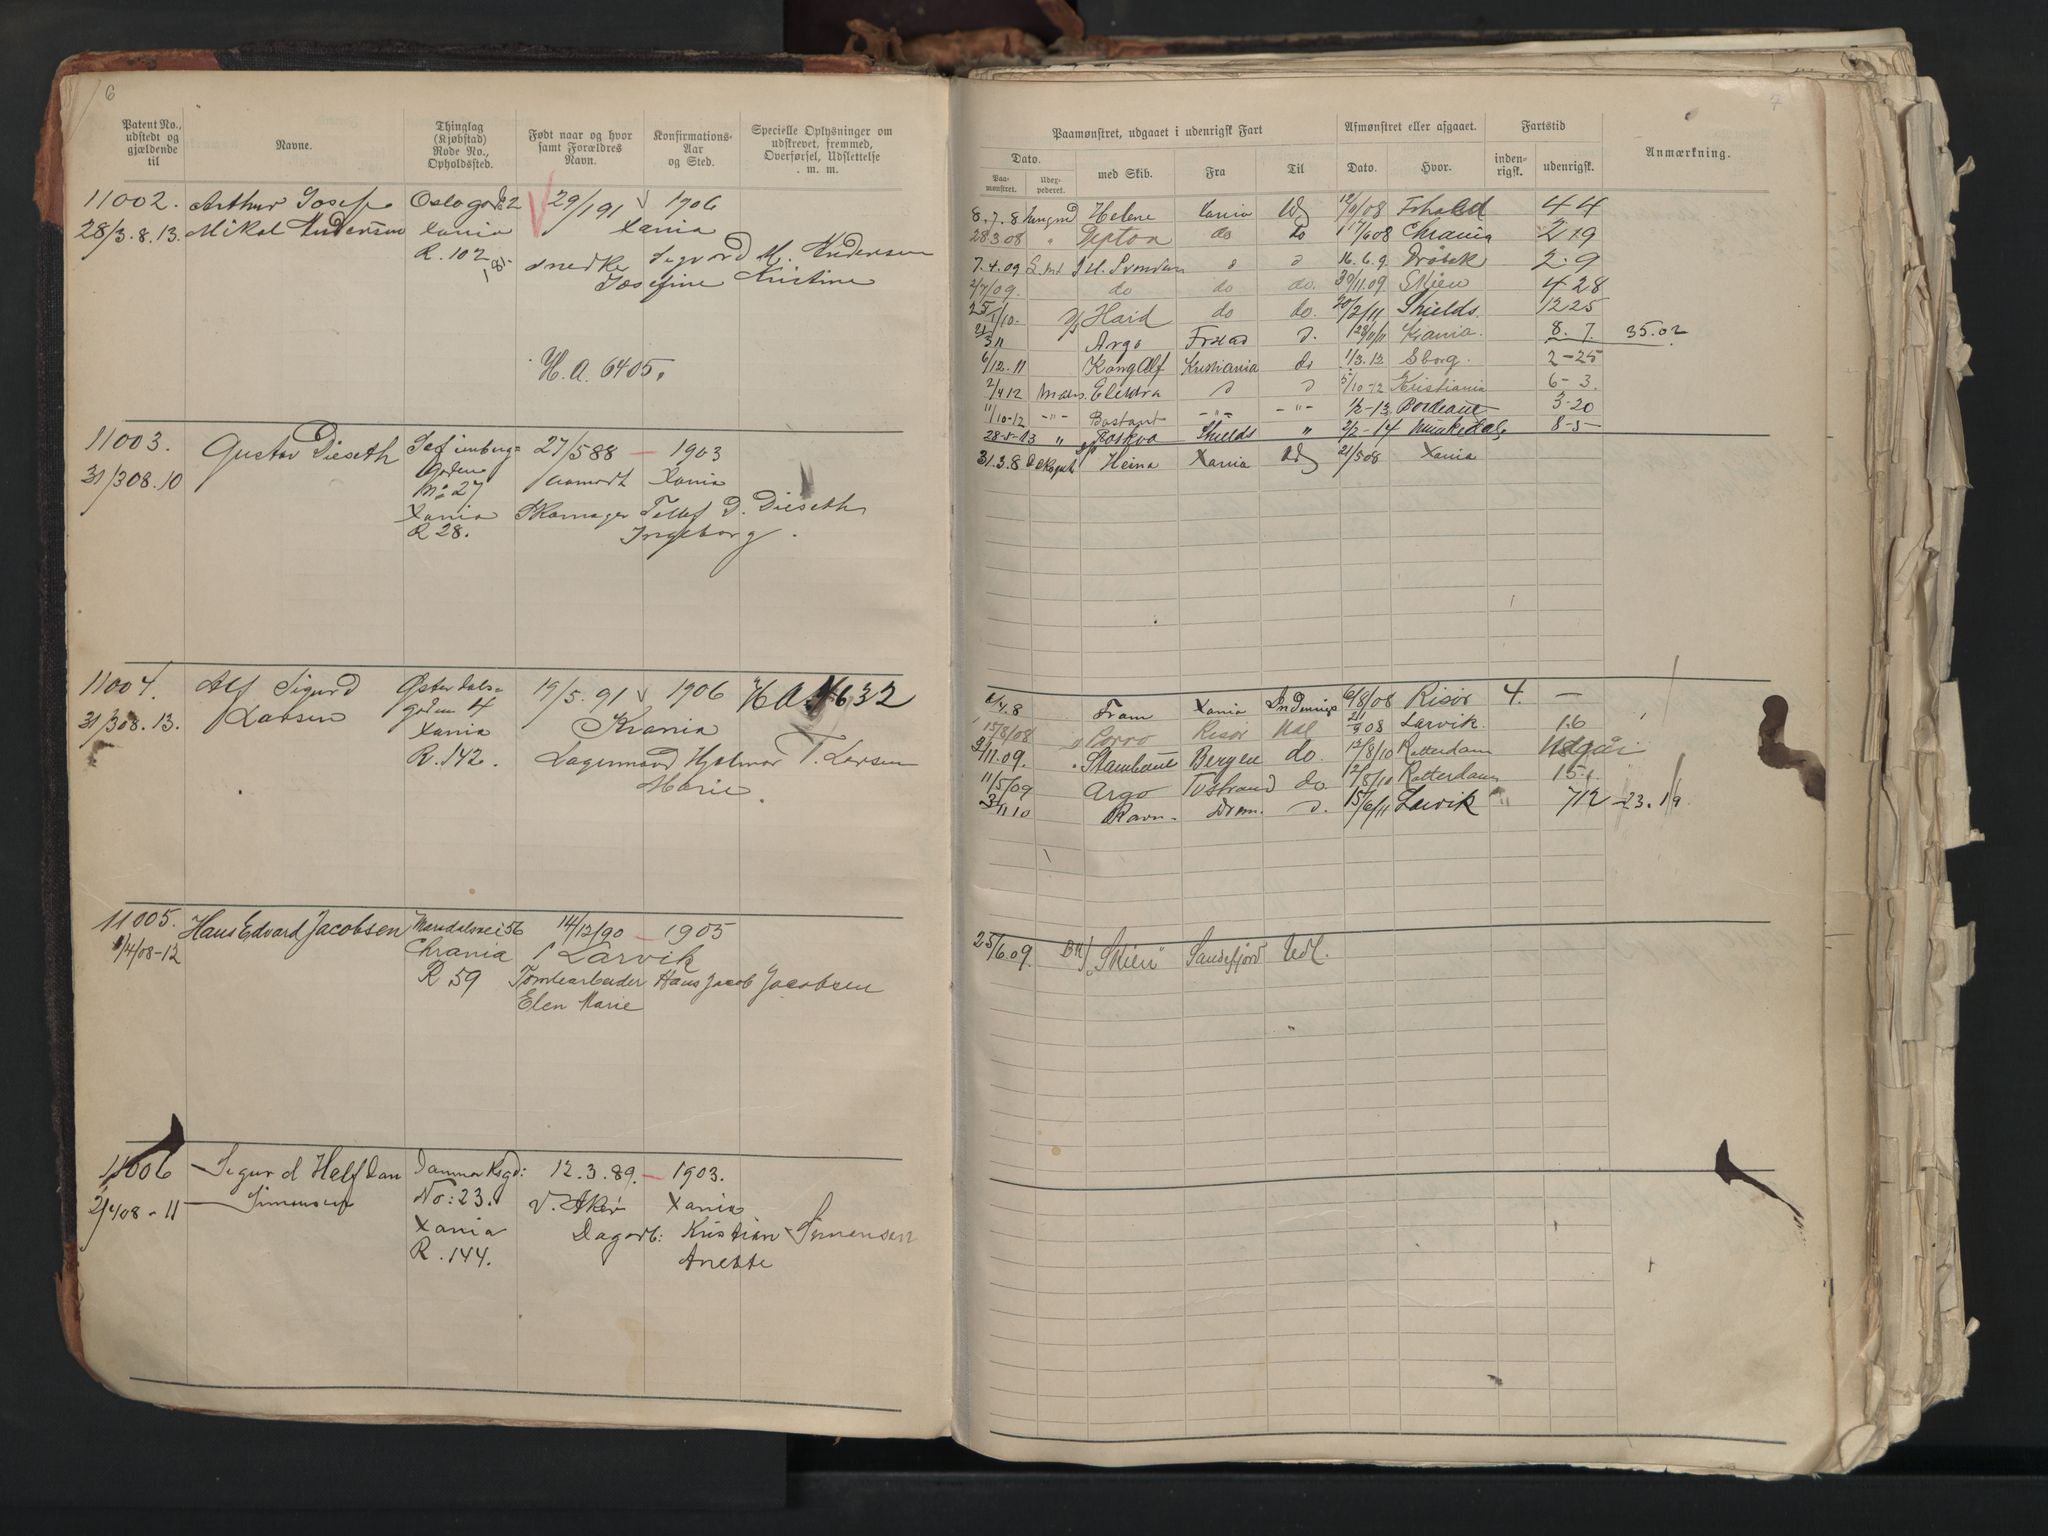 6
Patent No., udstedt og gjældende til
Navne.
Thinglag (Kjøbstad) Rode No., Opholdssted.
Født naar og hvor samt Forældres Navn.
Konfirmations-Aar og Sted.
Specielle Oplysninger om udskrevet, fremmed, Overførsel, Udslettelse m. m.
11002. Arthur Josef Oslogd 2 29/1 91 1906
28/3.8.13. Mikal Andersen Xania Xania
R. 102 Snedker Sigvard M. Andersen
Josefine Kristine
H. A. 6405.
11003. Gustav Dieseth 27/5 88 — 1903
31/3 08.10 gaden Xania
No 27
Xania Skomager D. Dieseth
R 28. Ingeborg.
11004. Alf Sigurd Østerdals= 19/5.91 1906 H A 4632
31/3 08.13. Larsen gaden 4 Krania
Xania
R. 142. Lagermand Hjalmar T. Larsen
Marie.
11005. Hans Edvard Jacobsen Maridalsvei 56 14/12/90 — 1905
1/4/08-12 Chrania Larvik
R 59 Tomtearbeider Hans Jacob Jacobsen
Elen Marie
11006 Sigurd Halfdan Danmarksgd: 12.3.89. — 1903.
2/4 08-11 Simensen No: 23. V. Aker Xania
Xania Dagarb: Kristian Simensen
R. 144. Anette
7
Paamønstret, udgaaet i udenrigsk Fart
Afmønstret eller afgaaet.
Fartstid
Anmærkning.
Dato.
Paa-mønstret.
Udex-pederet.
med Skib.
Fra
Til
Dato.
Hvor.
inden-rigsk.
udenrigsk.
8.7.8 Jungmd Helene Xania Udl 12/11/08 Frhald 4 4
28 3.08 " do do 17/6 08 Chrania 2 19
7.4.09 16.6.9 Drøbak 2.9
2/7/09. do do do. 30/11.09 Skien 4 28
25/1/10- D/S Haid do do. 20/2/11 Shields. 12 25
Argo Frstad D. 28/11/11 Krania. 8. 7. 35.02
6/12.11 Kong Alf Kristiania do 1/3.12 Sborg. 2-25
2/4 12 Mads. Elektra 5/10-12 Kristiania 6-3.
11/10-12 -"- Bastant -"- -"- 1/2-13 Bordeaux 3-20
28-5-13 " Roskva Shields " 2/2-14 Munkedals 8-5
31.3.8 Dæksgut Heina Xania Udl 21/5 08 Xania
1/4.8 Fram Xania Indenrigs 6/8/08 Risør 4. —
15/8/08 Porro Risør Udl 21/9 08 Larvik. 1.6
3/11.09. Bergen do. 13/8/10 Rotterdam Udgår
11/5/09 Argo Tvstrand do 12/5/10 Rotterdam 15.
3/11 10 Ravn D. 15/6/11 Larvik 7 12 23.19
25/6.09. "Skien" Sandefjord Udl.